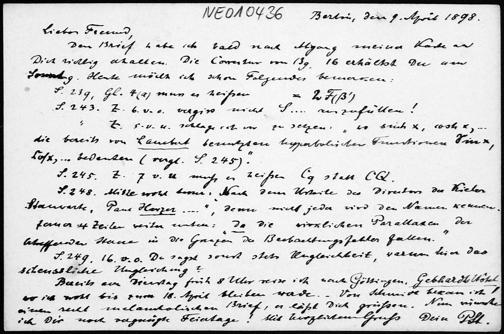 NEO10436
Berlin, den 9. April 1898.
Lieber Freund,
Den Brief habe ich bald nach Abgang meiner Karte an
Dich richtig erhalten. Die Correctur von Bg. 16 erhältst Du am
Sonntag. Heute möchte ich schon Folgendes bemerken:
S. 239, Gl. 4(a) muss es heissen =
S. 243. Z. 6. v. o. vergiss nicht S.... auszufüllen!
" Z. 5. v. u. schlage ich vor zu setzen: "wo sich x, cosh x, ...
die bereits von Lambert benutzten hyperbolischen Functionen Sin x,
Cos x, ... bedeuten (vergl. S. 245)."
S. 245. Z. 7 v. u. muss es heissen Cq statt CQ.
S. 248. Mitte wohl besser: "Nach dem Urteile des Directors der Kieler
Sternwarte, Paul Harzer ....", denn nicht jeder wird den Namen kennen.
ferner 4 Zeilen weiter unten: da die wirklichen Parallaxen der
betreffenden Sterne in die Grenzen der Beobachtungsfehler fallen."
S. 249. 16. v. o. Du sagst sonst stets Ungleichheit, warum hier das
scheussliche Ungleichung?
Bereits am Dienstag früh 8 Uhr reise ich nach Göttingen, Gebhards Hotel
wo ich wohl bis zum 18. April bleiben werde. Von Schmidt bekam ich
einen recht melancholischen Brief, er lässt Dich grüssen. Nun wünsche
ich Dir noch vergnügte Feiertage! Mit herzlichem Gruss Dein